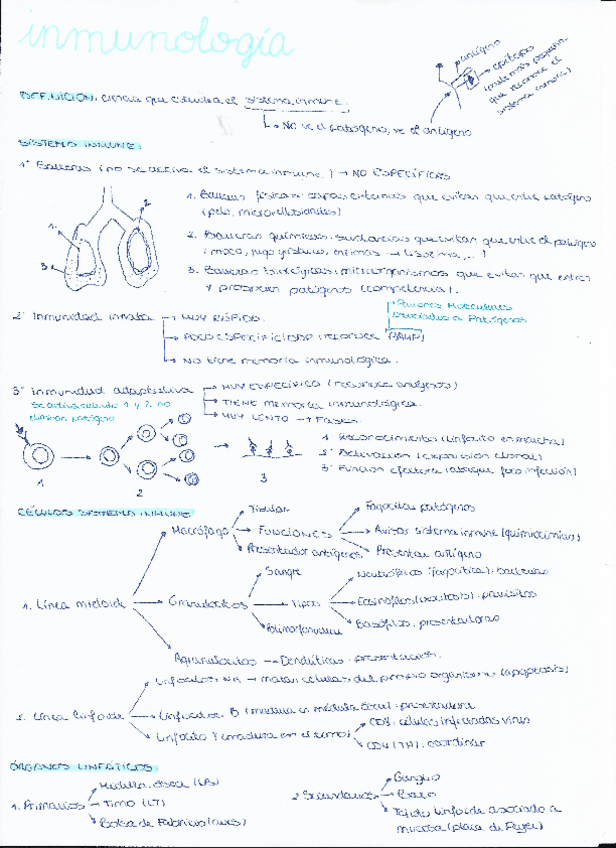 inmunología
antígeno
epítopo
(parte más pequeña
que reconoce el
sistema inmune)
DEFINICIÓN: ciencia que estudia el sistema inmune.
→ No ve el patógeno, ve el antígeno
SISTEMA INMUNE:
1º Barreras (no se activa el sistema inmune.) → NO ESPECÍFICAS
1. Barreras físicas: capas externas que evitan que entre patógeno
(pelo, microvellosidades)
2. Barreras químicas: sustancias que evitan que entre el patógeno
(moco, jugo gástrico, enzimas → lisozima, ...)
3. Barreras biológicas: microorganismos que evitan que entren
y proliferen patógenos (competencia).
1.
2
3
2º Inmunidad innata
→ MUY RÁPIDA.
→ POCO ESPECIFICIDAD (reconoce PAMP)
Patrones Moleculares
Asociados a Patógenos
→ No tiene memoria inmunológica.
3º Inmunidad adaptativa
se activa cuando 1 y 2 no
eliminan patógeno
→ MUY ESPECÍFICA (reconoce antígenos)
→ TIENE memoria inmunológica.
→ MUY LENTO → Fases.
1º Reconocimiento (linfocito en marcha)
2º Activación (expansión clonal)
3º Función efectora (ataque foco infección)
1
2
3
CÉLULAS SISTEMA INMUNE
1. Línea mieloide
Macrófago
Tisular
FUNCIONES
Fagocitar patógenos
Avisar sistema inmune (quimiocinas)
Presentar antígeno
Presentador antígenos
Granulocitos
Sangre
TIPOS
Neutrófilos (fagocítica): bacterias
Eosinófilos (exocitosis): parásitos
Basófilos: presentadoras
Polimorfonuclear
Agranulocitos → Dendríticas: presentación.
2. Línea linfoide
Linfocitos NK → matar células del propio organismo (apoptosis)
Linfocitos B (madura en médula ósea): presentadora
Linfocito T (madura en el timo)
CD8: células infectadas virus
CD4 (TH): coordinar
ÓRGANOS LINFÁTICOS
1. Primarios
Médula ósea (LB)
Timo (LT)
Bolsa de Fabricio (aves)
2. Secundarios
Ganglio
Bazo
Tejido linfoide asociado a
mucosa (placa de Peyer)